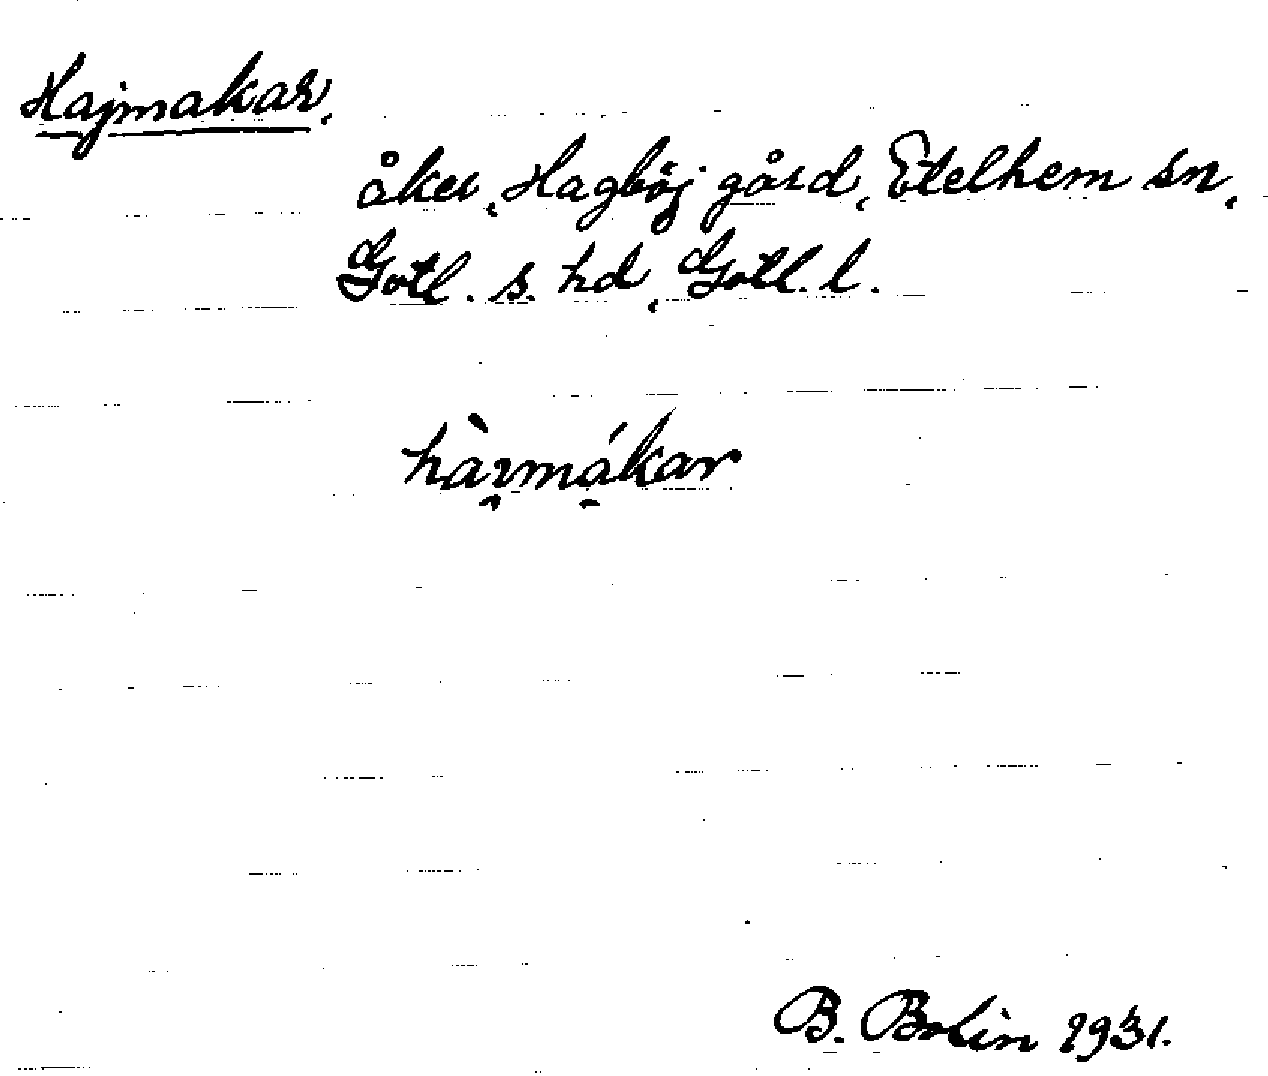 Hajmakar,
åker, Hagböj gård, Etelhem sn,
Gotl. s. hd, Gotl. l.
B. Bolin 1931.